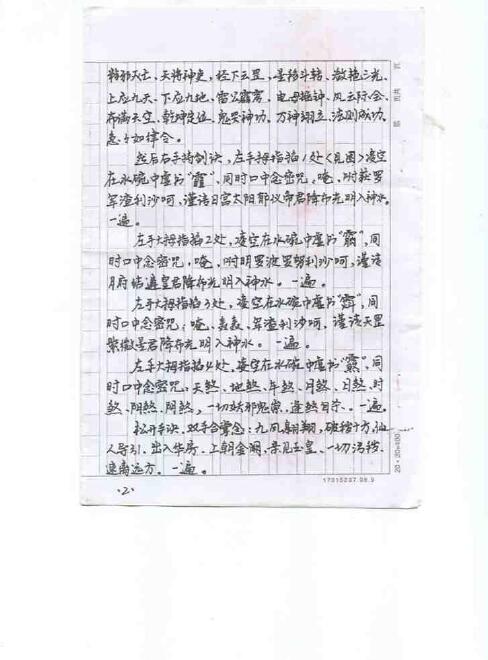 天将神吏，径下云罡，星移斗转，敕换三光，
上应九天，下应九地，雷公霹雳，电母掣钟，风云际会，
布满天空，乾坤定位，鬼哭神功，万神翊立，法则成功，
急急如律令。
然后右手将剑诀，左手拇指掐1处〈见图〉凌空
在水碗中虚书“”，同时口中念密咒：唵，
利沙呵，谨请日宫太阳君降布光明入神水。
一遍。
左手大拇指掐2处，凌空在水碗中虚书“”，同
时口中念密咒，唵，利沙呵，谨请
月府皇君降布光明入神水。一遍。
左手大拇指掐3处，凌空在水碗中虚书“”，同
时口中念密咒：唵，利沙呵，谨请天罡
紫微星君降布光明入神水。一遍。
左手大拇指掐4处，凌空在水碗中虚书“”，同
时口中念密咒：天煞、地煞、年煞、月煞、日煞、时
煞、阴煞、阴煞，一切妖邪鬼祟，逢煞自。一遍。
松开手诀，双手合掌念：九凤翱翔，破秽十方，仙
人导引，出入华房，上朝金阙，亲见玉皇，一切污秽，
速离远方。一遍。
·2·
20×20=400
17015237.98.9